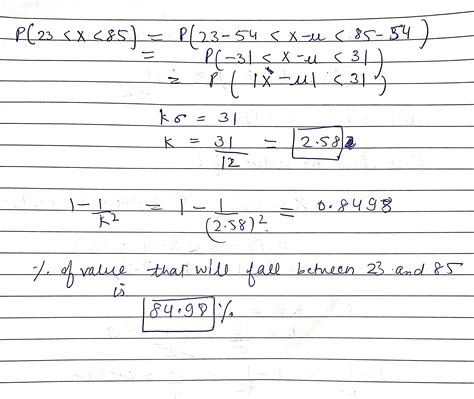 P(23 < x < 85) = P(23-54 < x-μ < 85-54)
= P(-31 < x-μ < 31)
= P(|x-μ| < 31)
kσ = 31
k = 31/12 = 2.58
1 - 1/k² = 1 - 1/(2.58)² = 0.8498
% of value that will fall between 23 and 85
is
84.98 %